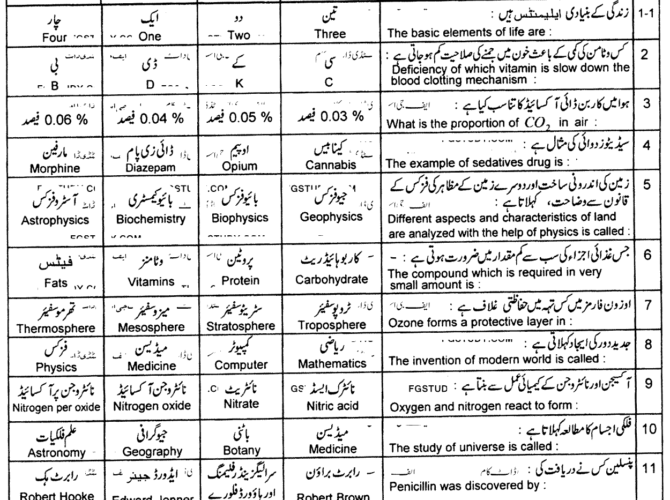 چار ایک دو تین زندگی کے بنیادی ایلیمنٹس ہیں : 1-1
Four One Two Three The basic elements of life are :
بی ڈی کے سی کس وٹامن کی کمی کے باعث خون میں جمنے کی صلاحیت کم ہو جاتی ہے : 2
B D K C Deficiency of which vitamin is slow down the
blood clotting mechanism :
0.06 % فیصد 0.04 % فیصد 0.05 % فیصد 0.03 % فیصد ہوا میں کاربن ڈائی آکسائیڈ کا تناسب کیا ہے : 3
What is the proportion of CO2 in air :
مارفین ڈائی زی پام اوپیم کینابیس سیڈیٹوز دوائی کی مثال ہے : 4
Morphine Diazepam Opium Cannabis The example of sedatives drug is :
آسٹروفزکس بائیوکیمسٹری بائیوفزکس جیوفزکس زمین کی اندرونی ساخت اور دوسرے زمین کے مظاہر کی فزکس کے 5
قانون سے وضاحت، کہلاتا ہے :
Astrophysics Biochemistry Biophysics Geophysics Different aspects and characteristics of land
are analyzed with the help of physics is called :
فیٹس وٹامنز پروٹین کاربوہائیڈریٹ جس غذائی اجزاء کی سب سے کم مقدار میں ضرورت ہوتی ہے : 6
Fats Vitamins Protein Carbohydrate The compound which is required in very
small amount is :
تھرموسفیئر میزوسفیئر سٹریٹوسفیئر ٹروپوسفیئر اوزون فارمز میں کس تہہ میں حفاظتی غلاف ہے : 7
Thermosphere Mesosphere Stratosphere Troposphere Ozone forms a protective layer in :
فزکس میڈیسن کمپیوٹر ریاضی جدید دور کی ایجاد کہلاتی ہے : 8
Physics Medicine Computer Mathematics The invention of modern world is called :
نائٹروجن پر آکسائیڈ نائٹروجن آکسائیڈ نائٹریٹ نائٹرک ایسڈ آکسیجن اور نائٹروجن کے کیمیائی عمل سے بنتا ہے : FGSTUD 9
Nitrogen per oxide Nitrogen oxide Nitrate Nitric acid Oxygen and nitrogen react to form :
علم فلکیات جیوگرافی باٹنی میڈیسن فلکی اجسام کا مطالعہ کہلاتا ہے : 10
Astronomy Geography Botany Medicine The study of universe is called :
رابرٹ ہک ایڈورڈ جینر سر الیگزینڈر فلیمنگ رابرٹ براؤن پنسلین کس نے دریافت کی : 11
اور ہاورڈ فلورے
Robert Hooke Edward Jenner Robert Brown Penicillin was discovered by :